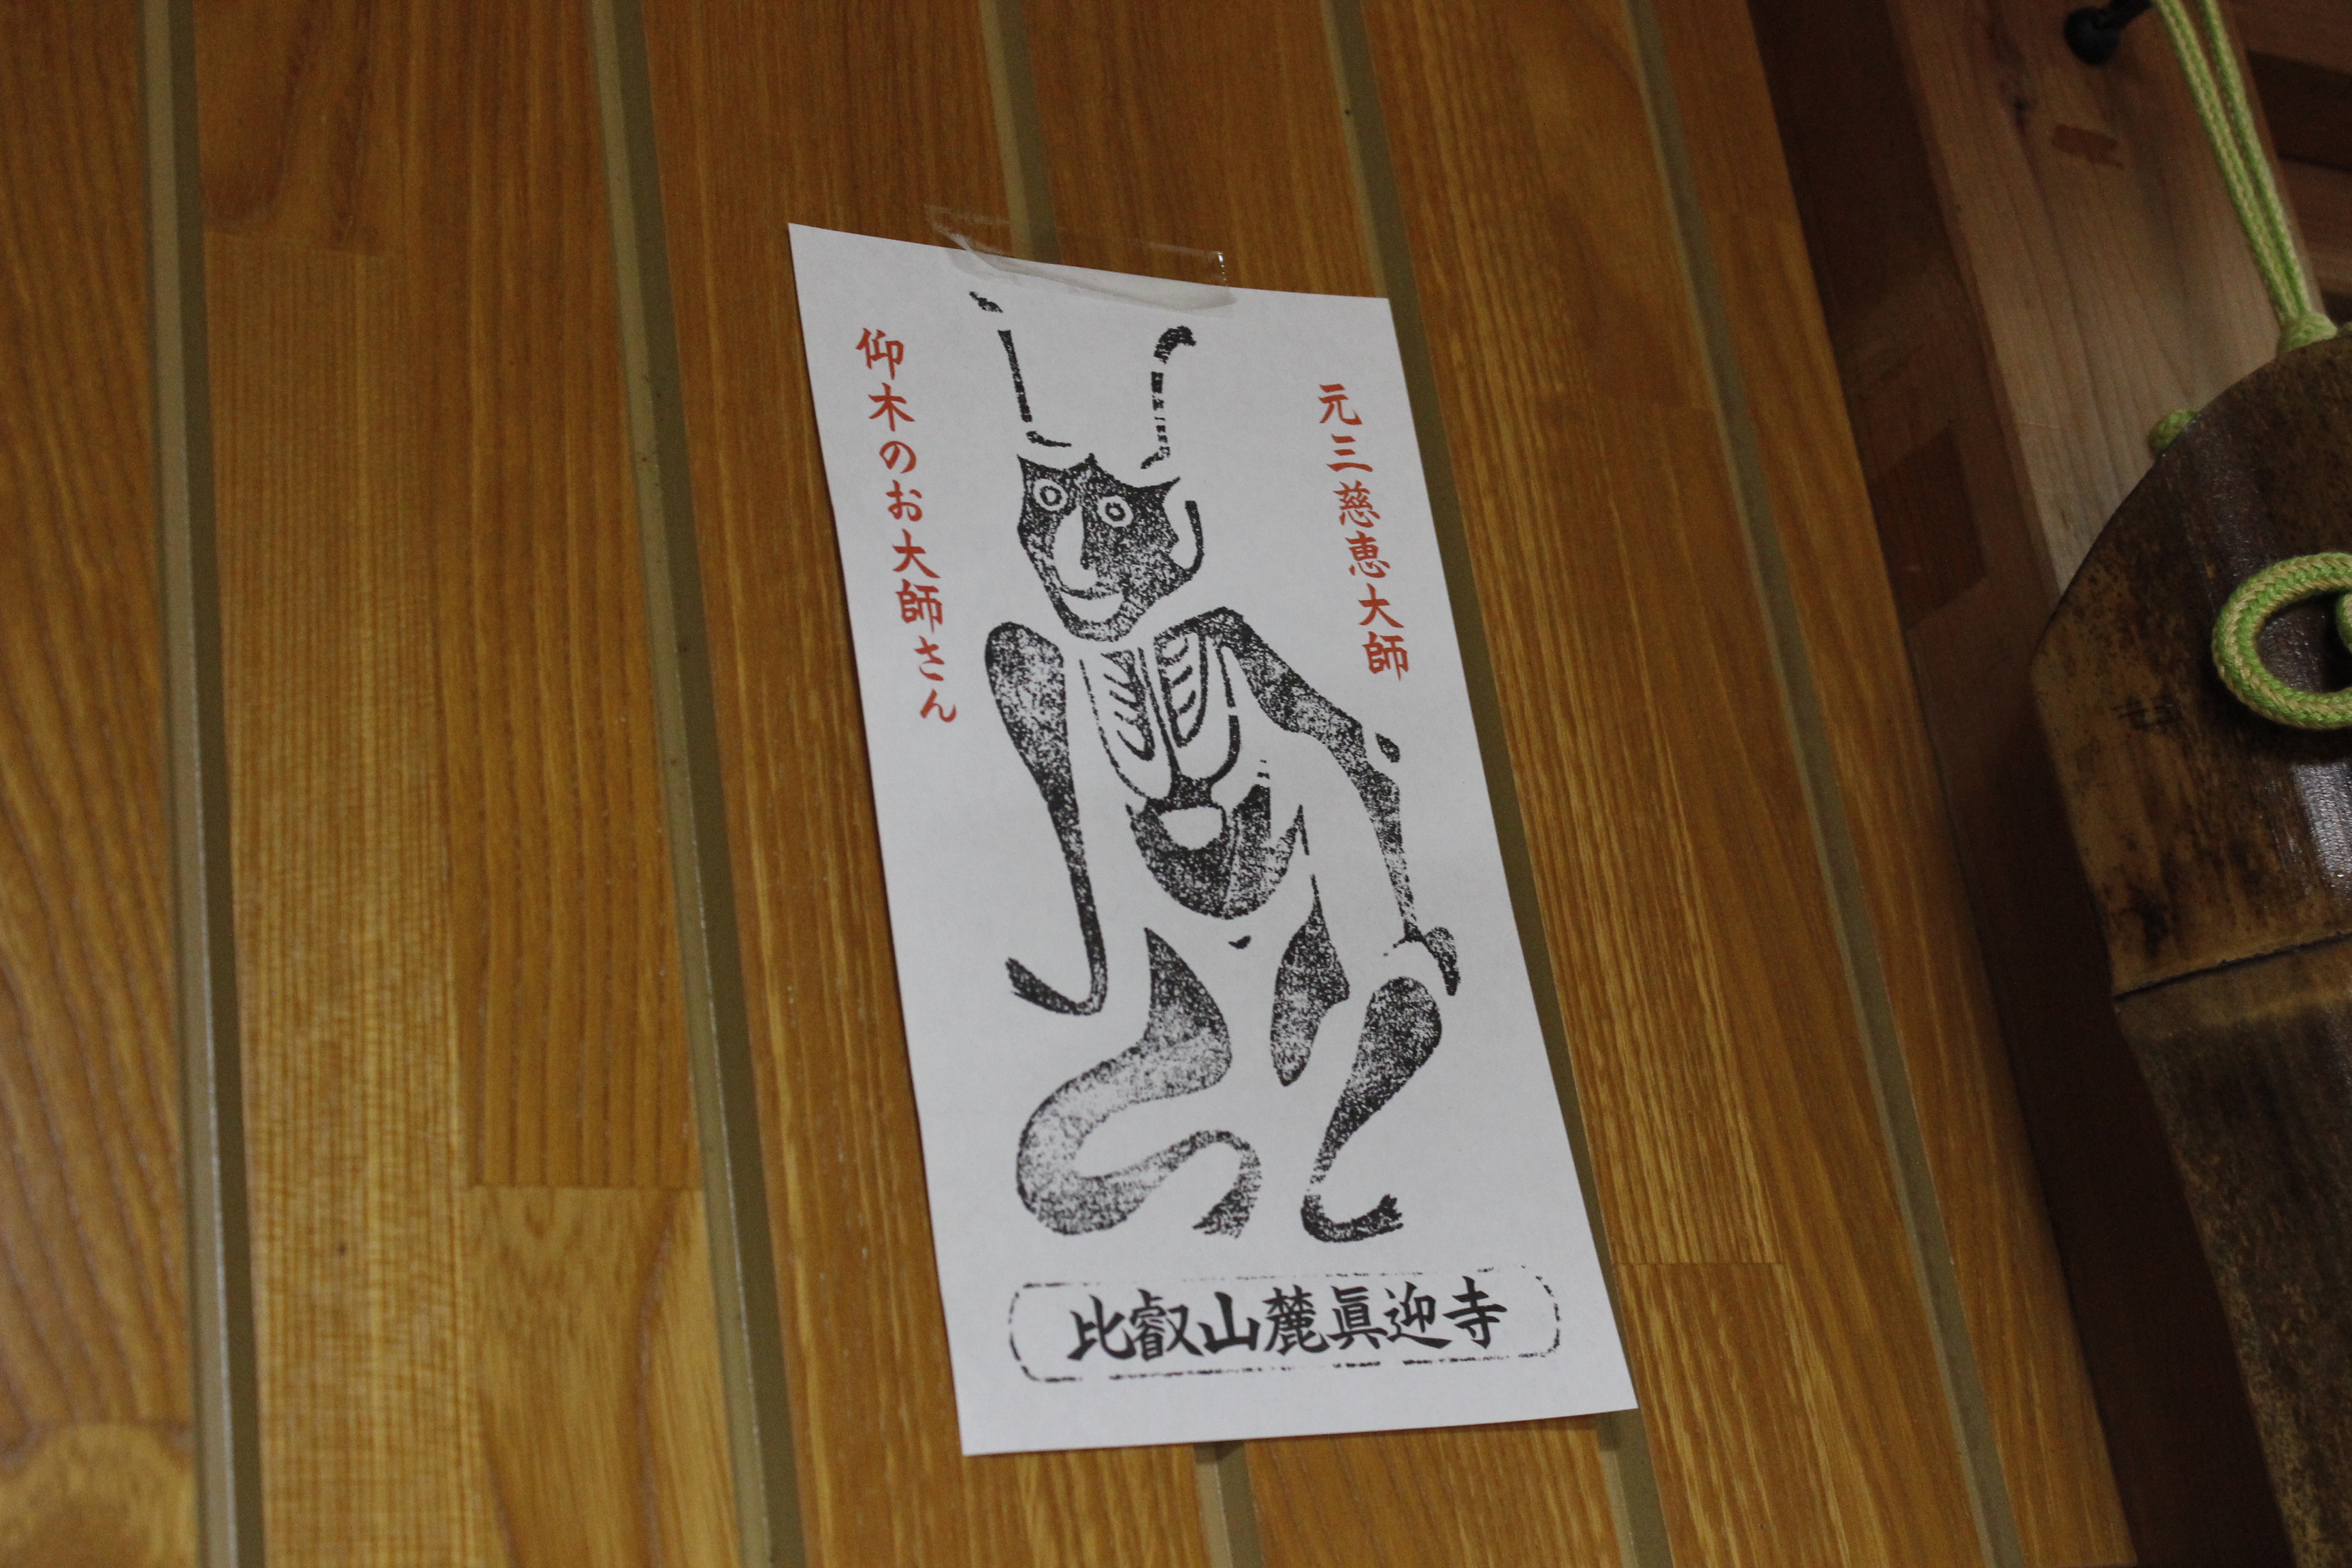 元三慈恵大師
仰木のお大師さん
比叡山麓眞迎寺